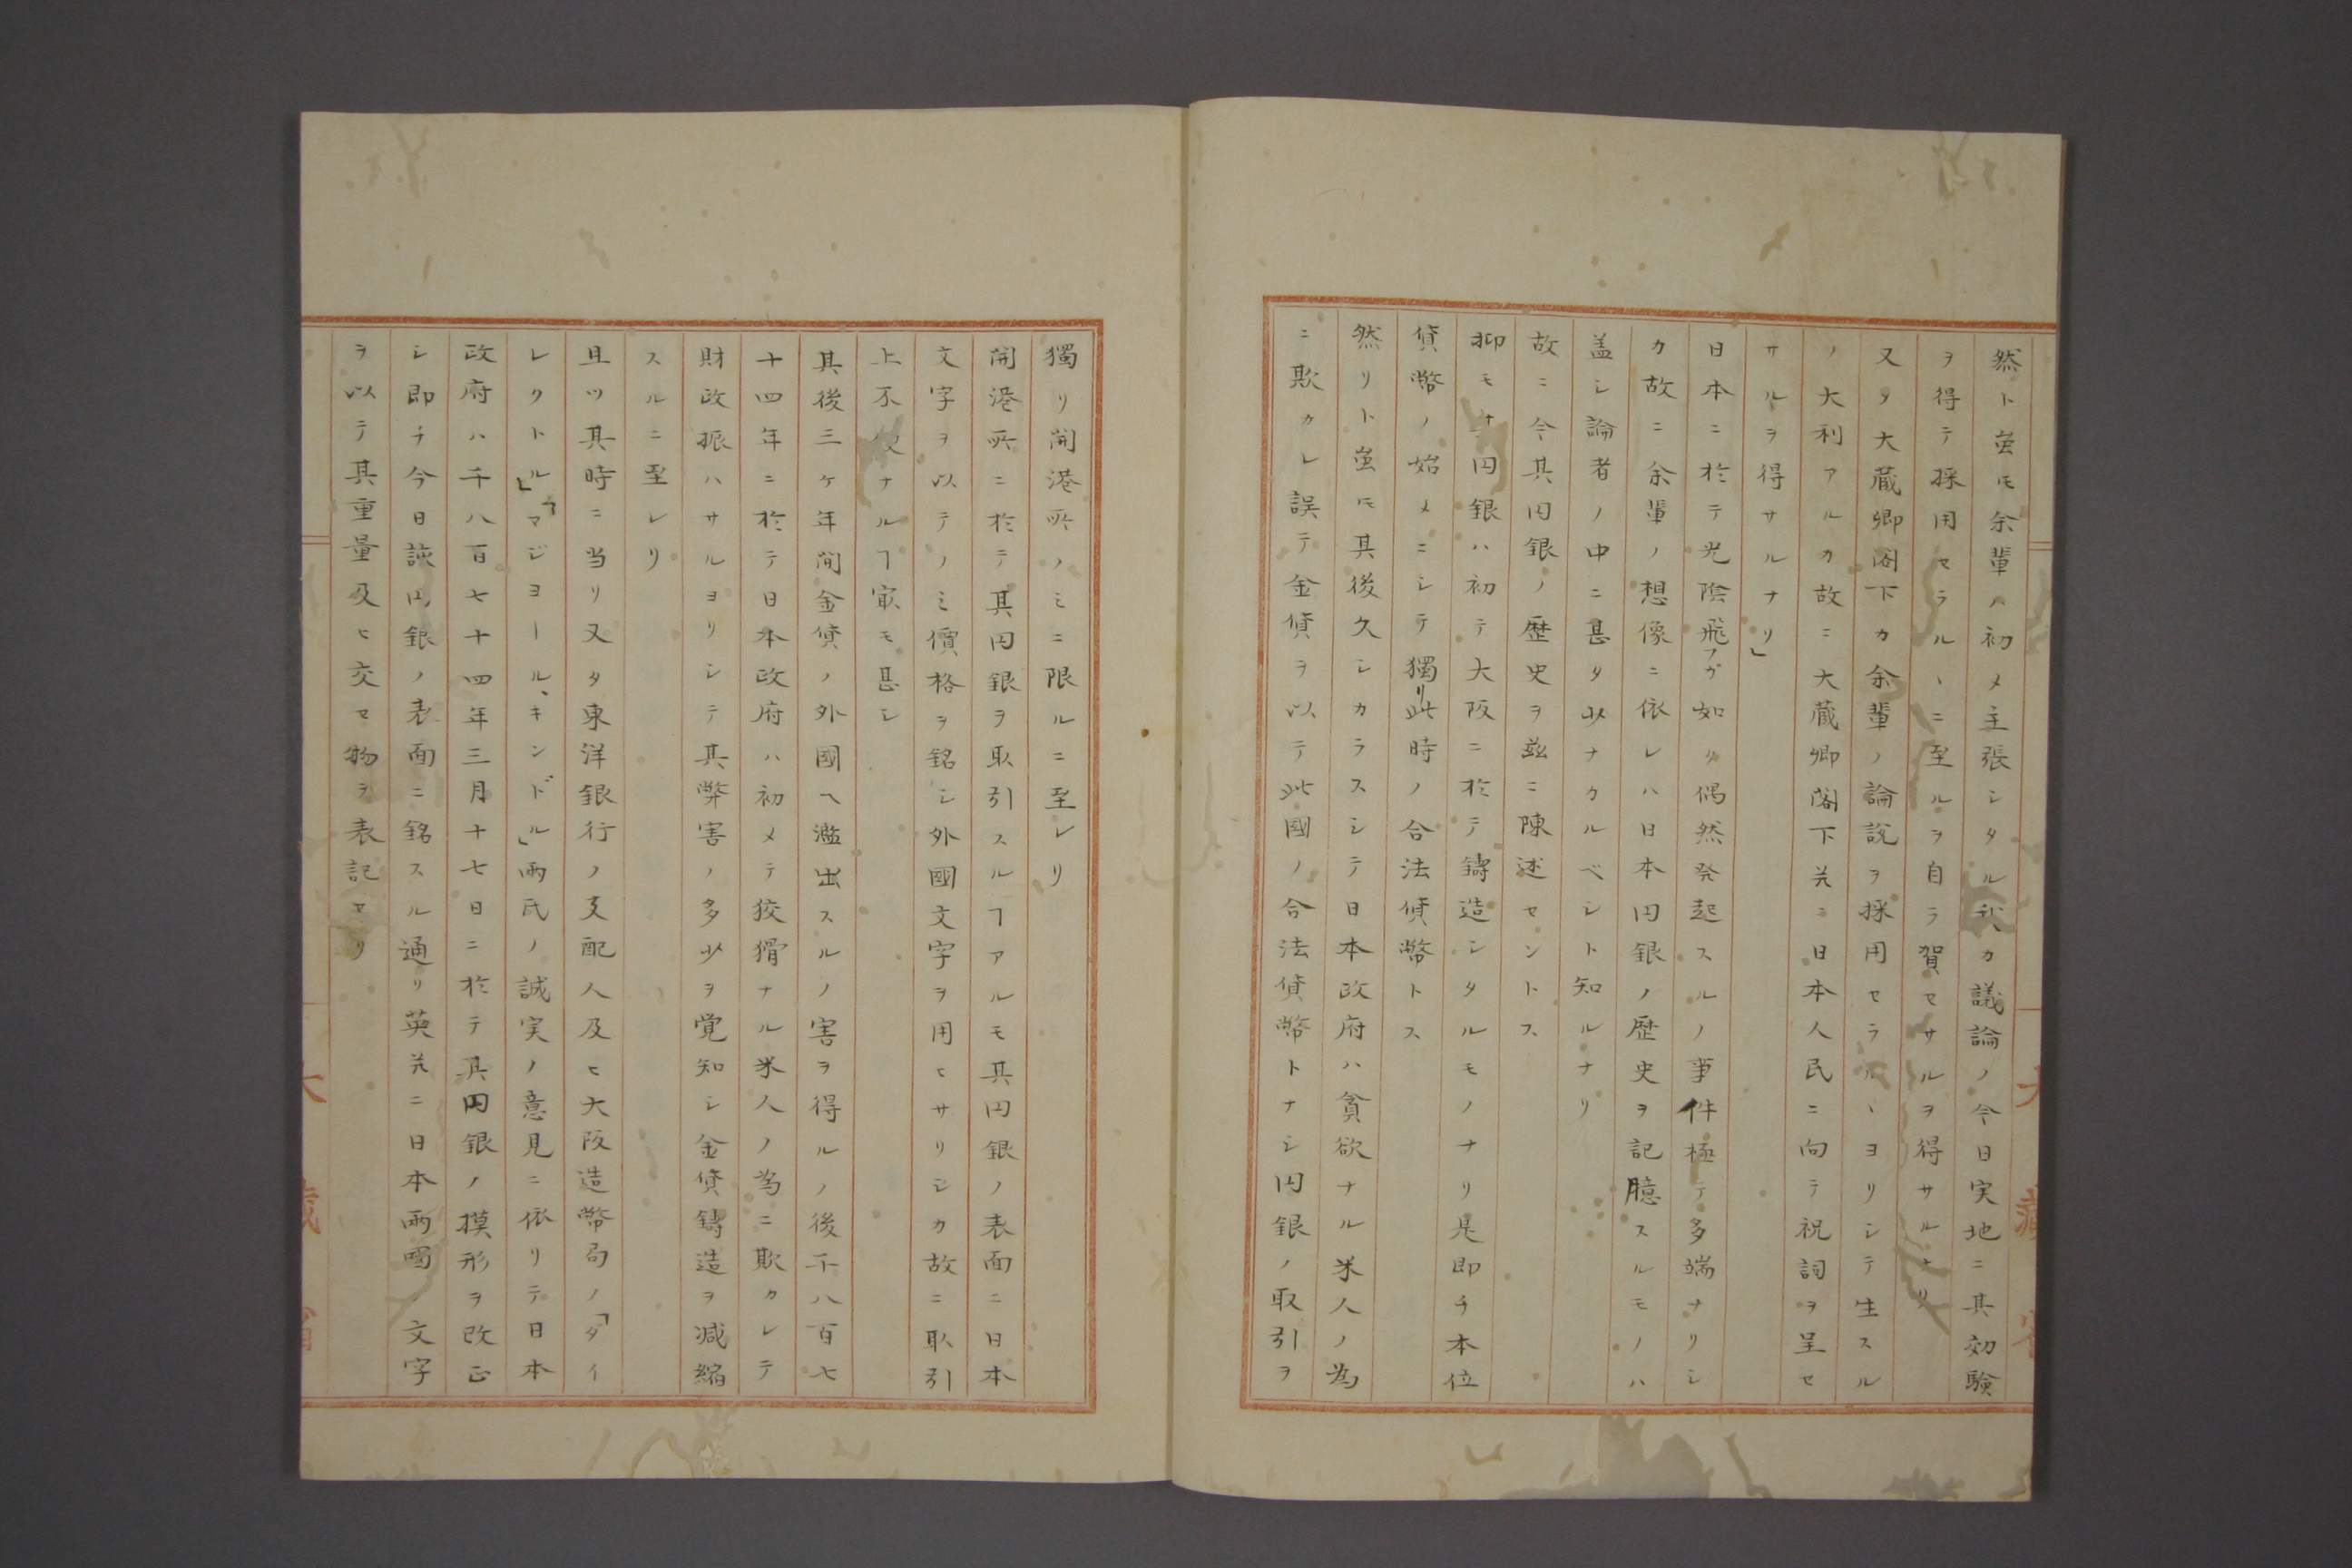 然ト雖モ余輩ハ初メ主張シタル我カ議論ノ今日実地ニ其効験
ヲ得テ採用セラルヽニ至ルヲ自ラ賀セサルヲ得サルナリ
又タ大蔵卿閣下カ余輩ノ論説ヲ採用セラルヽヨリシテ生スル
ノ大利アルカ故ニ大蔵卿閣下并ニ日本人民ニ向テ祝詞ヲ呈セ
サルヲ得サルナリ」
日本ニ於テ光陰飛フガ如ク偶然発起スルノ事件極テ多端ナリシ
カ故ニ余輩ノ想像ニ依レハ日本円銀ノ歴史ヲ記臆スルモノハ
盖シ論者ノ中ニ甚タ少ナカルベシト知ルナリ
故ニ今其円銀ノ歴史ヲ玆ニ陳述セントス
抑モ円銀ハ初テ大阪ニ於テ鋳造シタルモノナリ是即チ本位
貨幣ノ始メニシテ獨リ此時ノ合法貨幣トス
然リト雖モ其後久シカラスシテ日本政府ハ貪欲ナル米人ノ為
ニ欺カレ誤テ金貨ヲ以テ此國ノ合法貨幣トナシ円銀ノ取引ヲ
獨リ開港所ノミニ限ルニ至レリ
開港所ニ於テ其円銀ヲ取引スルヿアルモ其円銀ノ表面ニ日本
文字ヲ以テノミ價格ヲ銘シ外國文字ヲ用ヒサリシカ故ニ取引
上不便ナルヿ寔モ甚シ
其後三ヶ年間金貨ノ外國ヘ濫出スルノ害ヲ得ルノ後千八百七
十四年ニ於テ日本政府ハ初メテ狡猾ナル米人ノ為ニ欺カレテ
財政振ハサルヨリシテ其弊害ノ多少ヲ覚知シ金貨鋳造ヲ减縮
スルニ至レリ
且ツ其時ニ当リ又タ東洋銀行ノ支配人及ヒ大阪造幣局ノ「タイ
レクトル」「マジヨール、キンドル」両氏ノ誠実ノ意見ニ依リテ日本
政府ハ千八百七十四年三月十七日ニ於テ其円銀ノ摸形ヲ改正
シ即チ今日該円銀ノ表面ニ銘スル通リ英并ニ日本両國文字
ヲ以テ其重量及ヒ交セ物ヲ表記セリ
大藏省
大藏省